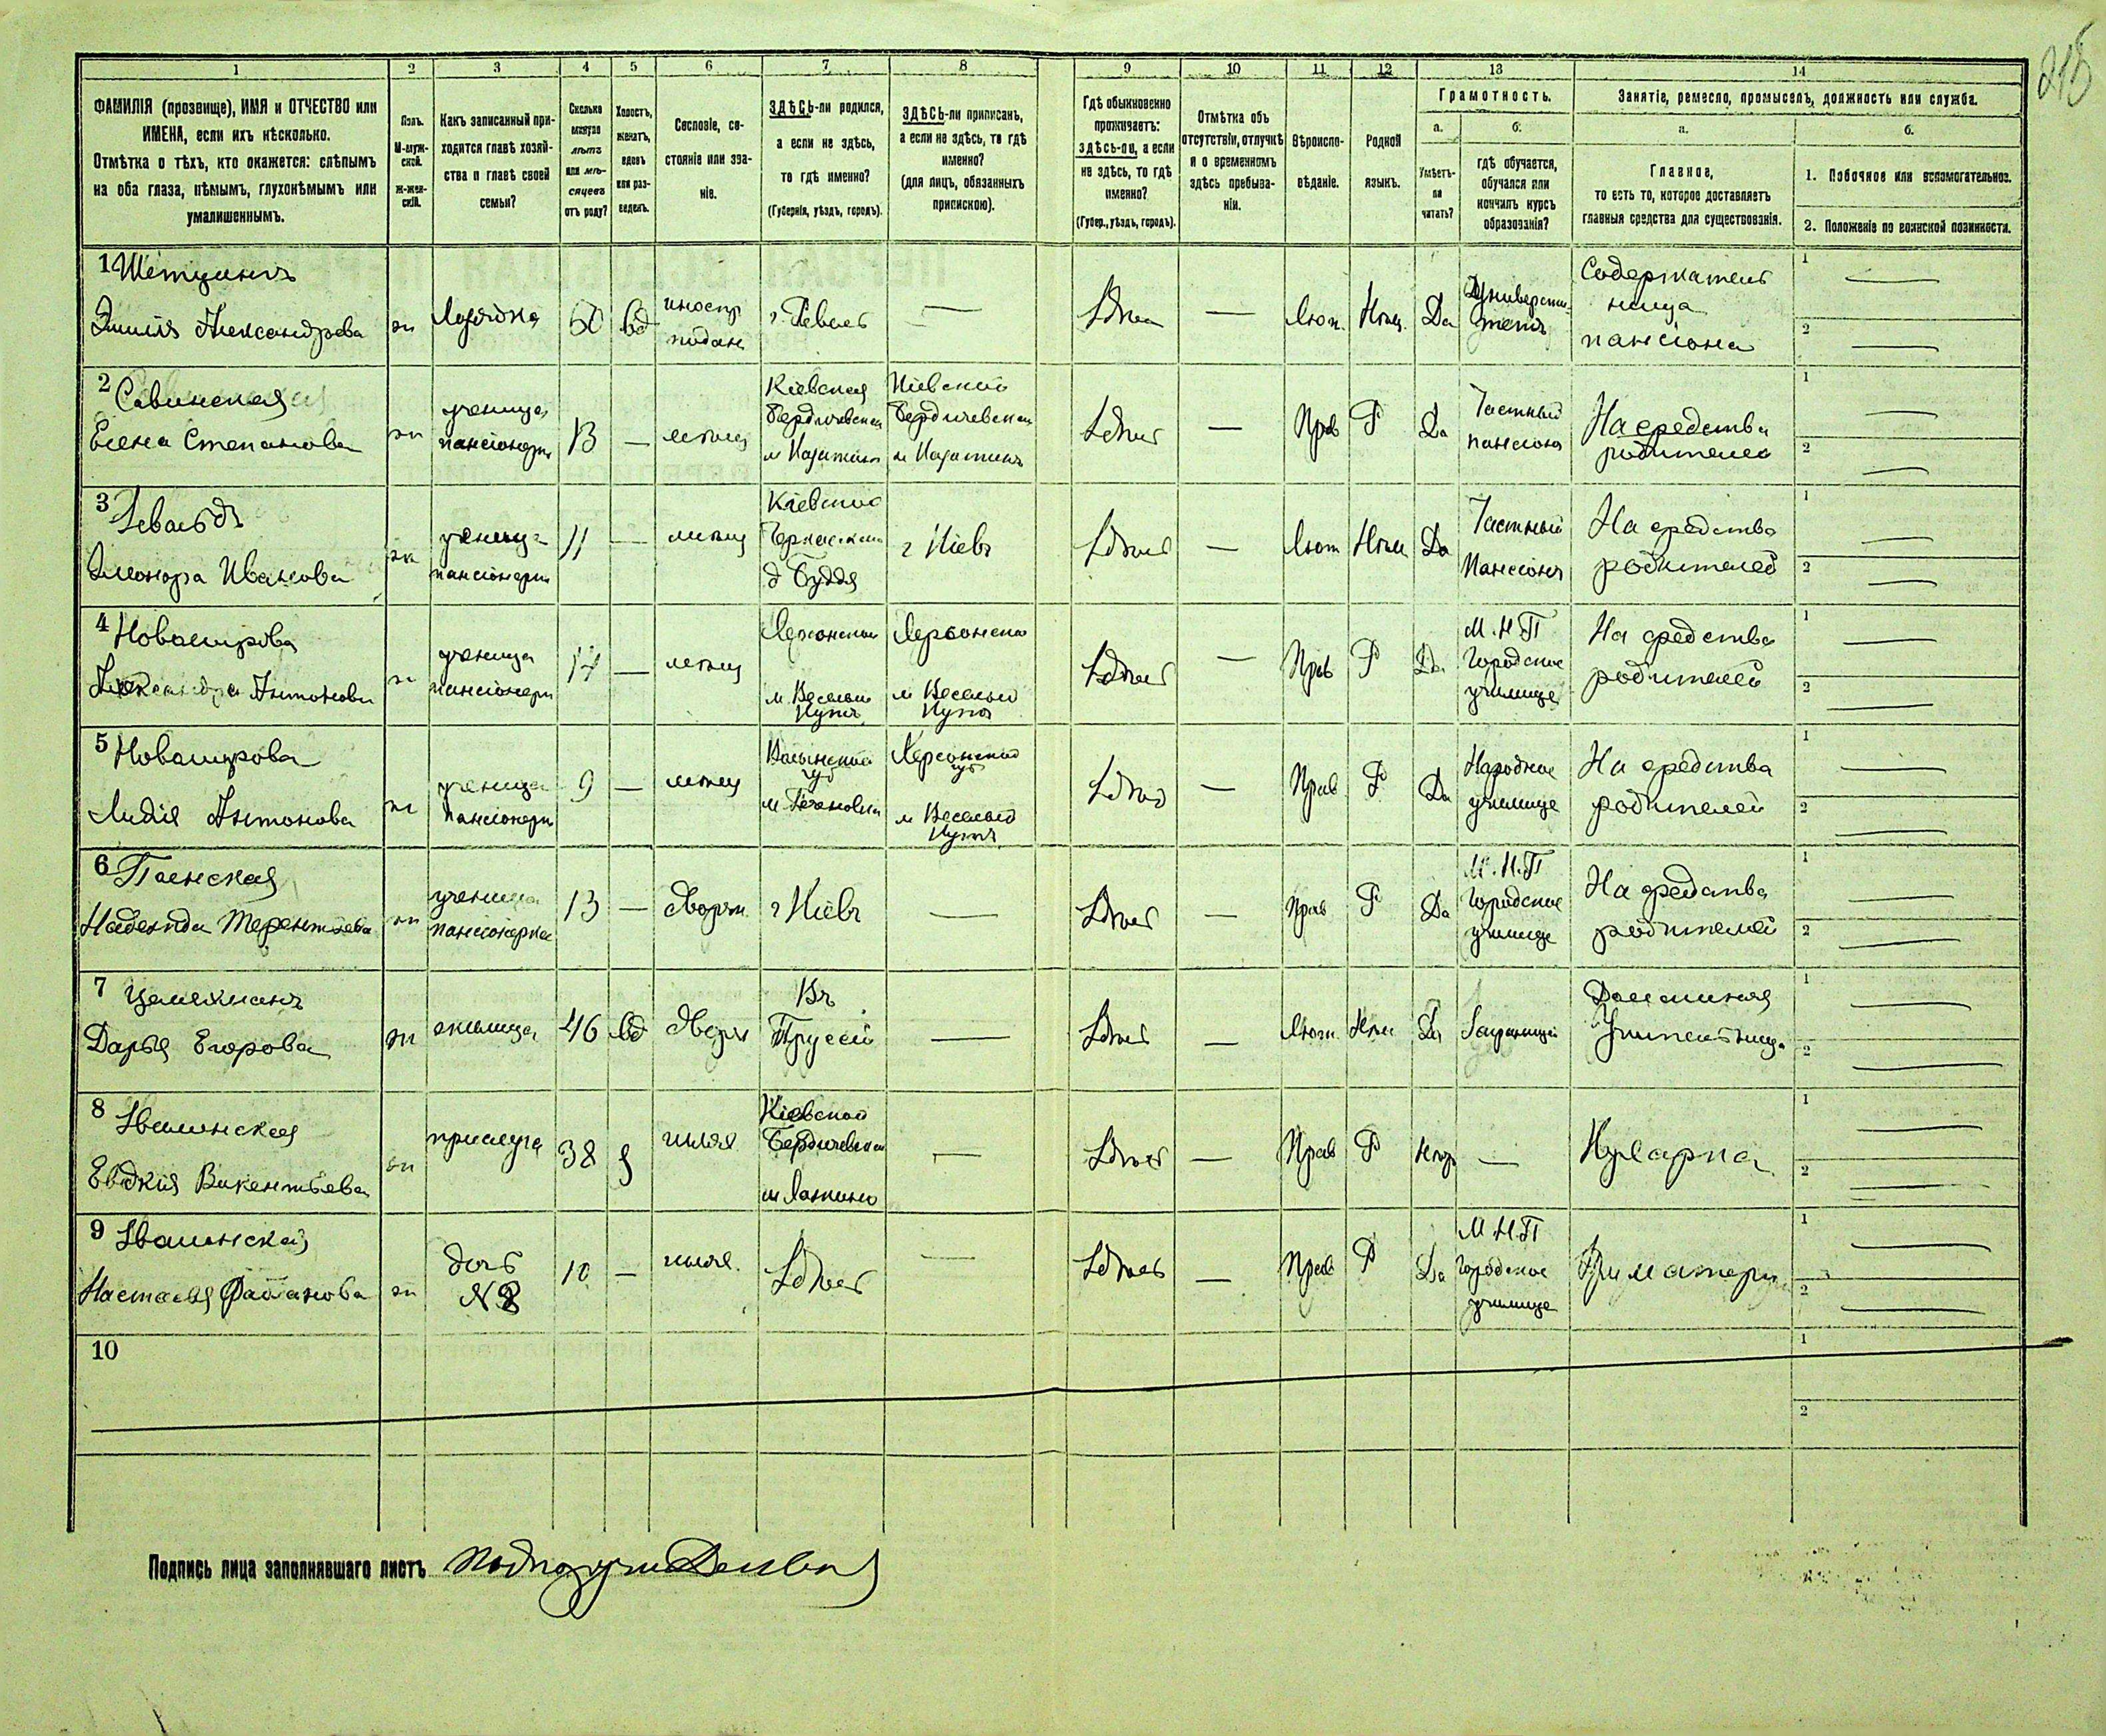 215
1 2 3 4 5 6 7 8 9 10 11 12 13 14
ФАМИЛІЯ (прозвище), ИМЯ и ОТЧЕСТВО или
ИМЕНА, если ихъ нѣсколько.
Отмѣтка о тѣхъ, кто окажется: слѣпымъ
на оба глаза, нѣмымъ, глухонѣмымъ или
умалишеннымъ.
Полъ.
М-муж-
ской.
Ж-жен-
скій.
Какъ записанный при-
ходится главѣ хозяй-
ства и главѣ своей
семьи?
Сколько
минуло
лѣтъ
или мѣ-
сяцевъ
отъ роду?
Холостъ,
женатъ,
вдовъ
или раз-
веденъ.
Сословіе, со-
стояніе или зва-
ніе.
ЗДѢСЬ-ли родился,
а если не здѣсь,
то гдѣ именно?
(Губернія, уѣздъ, городъ).
ЗДѢСЬ-ли приписанъ,
а если не здѣсь, то гдѣ
именно?
(для лицъ, обязанныхъ
припискою).
Гдѣ обыкновенно
проживаетъ:
здѣсь-ли, а если
не здѣсь, то гдѣ
именно?
(Губер., уѣздъ, городъ).
Отмѣтка объ
отсутствіи, отлучкѣ
и о временномъ
здѣсь пребыва-
ніи.
Вѣроиспо-
вѣданіе.
Родной
языкъ.
Грамотность.
а.
Умѣетъ-
ли
читать?
б.
гдѣ обучается,
обучался или
кончилъ курсъ
образованія?
Занятіе, ремесло, промыселъ, должность или служба.
а.
Главное,
то есть то, которое доставляетъ
главныя средства для существованія.
б.
1. Побочное или вспомогательное.
2. Положеніе по воинской повинности.
1
Эмилія Александрова
ж
60
вд
иностр
подан
г. Ревель
—
Здѣсь
—
Лют.
Нѣм.
Да
Содержатель
ница
пансіона
1 —
2 —
2 Савинская
Елена Степанова
ж
ученица
пансіонерк
13
—
мѣщ
Кіевская
Бердичевскаи
м Казатинъ
Кіевской
Бердичевскаи
м Казатинъ
Здѣсь
—
Прав
Р
Да
Частный
пансіонъ
На средства
родителей
1 —
2 —
3
Элеонора Иванова
ж
ученица
пансіонерк
11
—
мѣщ
Кіевской
г Кіевъ
Здѣсь
—
Лют
Нѣм
Да
Частный
Пансіонъ
На средства
родителей
1 —
2 —
4
Александра Антонова
ж
ученица
пансіонерк
14
—
мѣщ
Херсонской
м. Веселый
Кутъ
Херсонско
м Веселый
Кутъ
Здѣсь
—
Прав
Р
Да
М. Н. П
Городское
училище
На средства
родителей
1 —
2 —
5
Лидія Антонова
ж
ученица
пансіонерк
9
—
мѣщ
Волынской
губ
Херсонской
губ
м Веселый
Кутъ
Здѣсь
—
Прав
Р
Да
Народное
училище
На средства
родителей
1 —
2 —
6
Надежда Терентьева
ж
ученица
пансіонерка
13
—
Дворян
г Кіевъ
—
Здѣсь
—
Прав
Р
Да
М. Н. П
Городское
училище
На средства
родителей
1 —
2 —
7
Дарья Егорова
ж
жилица
46
вд
Дворян
Въ
Пруссіи
—
Здѣсь
—
Лют.
Нѣм
Да
Заграницей
Домашняя
Учительница
1 —
2 —
8
Евдокія Викентьева
ж
прислуга
38
Кіевской
Бердичевскаи
—
Здѣсь
—
Прав
Р
Нѣтъ
—
Кухарка
1 —
2 —
9
Настасья
ж
дочь
№ 8
10
—
Здѣсь
—
Здѣсь
—
Прав
Р
Да
М. Н. П
Городское
училище
При матери
1 —
2 —
10
1
2
Подпись лица заполнявшаго листъ